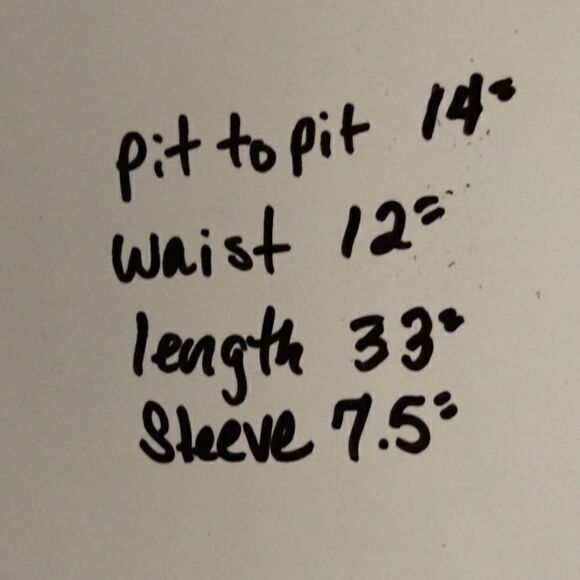 pit to pit 14"
waist 12"
length 33"
Sleeve 7.5"